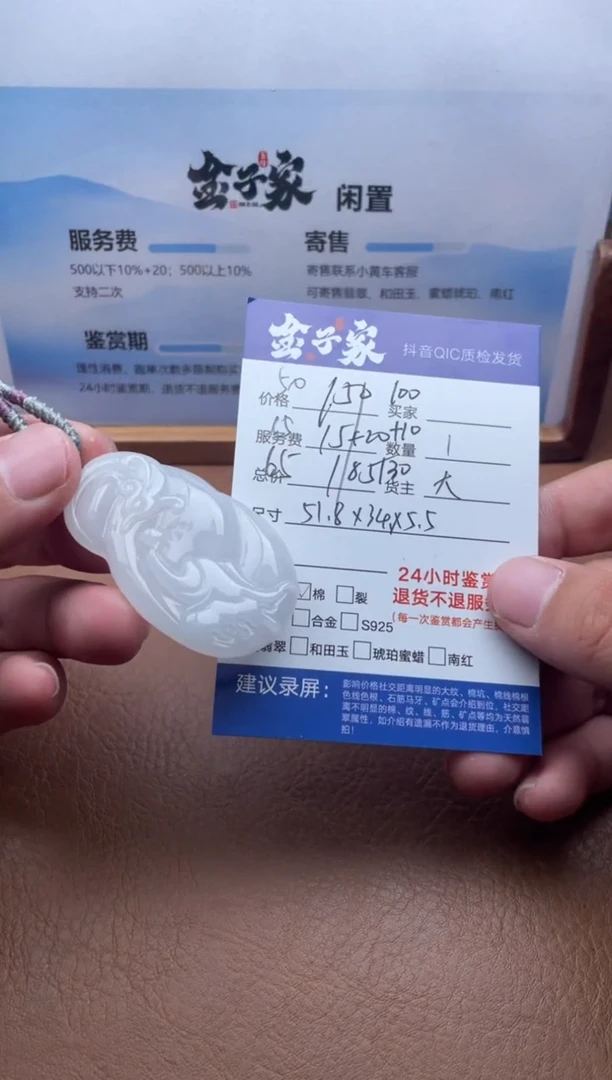 金子家 闲置
服务费
500以下10%+20；500以上10%
支持二次
寄售
寄售联系小黄车客服
可寄售翡翠、和田玉、蜜蜡琥珀、南红
鉴赏期
24小时鉴赏期，退货不退服务费
金子家 抖音QIC质检发货
50 150 100
价格 买家
15 15+20 +10
服务费 数量 1
65 185 130
总价 货主 大
尺寸 51.8×34×5.5
棉 裂
合金 S925
翡翠 和田玉 琥珀蜜蜡 南红
24小时鉴赏
退货不退服务
(每一次鉴赏都会产生
建议录屏：
影响价格社交距离明显的大纹、棉坑、棉线棉根
色线色根、石筋马牙、矿点会介绍到位，社交距
离不明显的棉、纹、线、筋、矿点等均为天然翡
翠属性，如介绍有遗漏不作为退货理由，介意慎
拍！